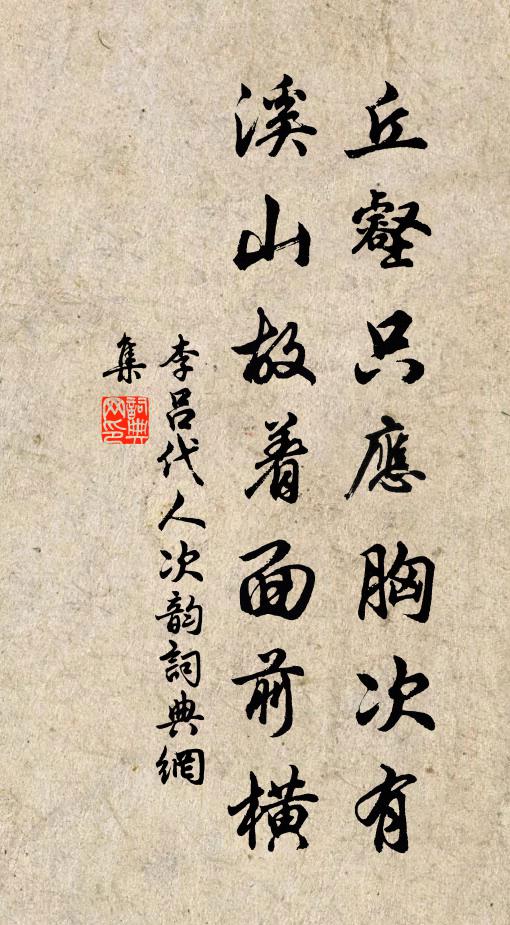 丘壑只應胸次有
溪山故着面前橫
李呂代人次韵詞典網
集
詞典網印